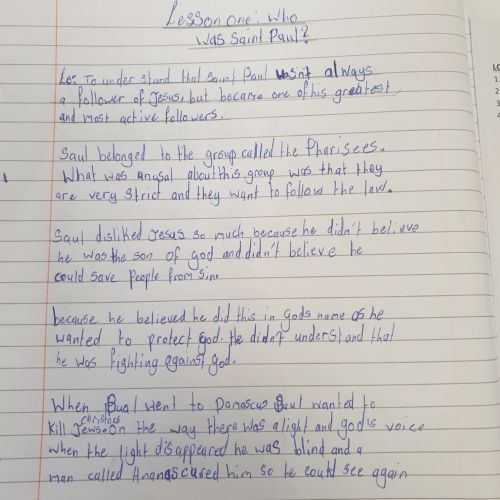 Lesson one: Who
was Saint Paul?
Lo: To understand that saint Paul wasn't always
a follower of Jesus, but became one of his greatest
and most active followers.
Saul belonged to the group called the Pharisees.
What was unusal about this group was that they
are very strict and they want to follow the law.
Saul disliked Jesus so much because he didn't believe
he was the son of god and didn't believe he
could save people from sin.
because he believed he did this in gods name as he
wanted to protect god. He didn't understand that
he was fighting against god.
When Saul went to Damascus Saul wanted to
christans
kill Jews. On the way there was a light and god is voice
when the light disappeared he was blind and a
man called Ananas cured him so he could see again
LO
1.
2
3